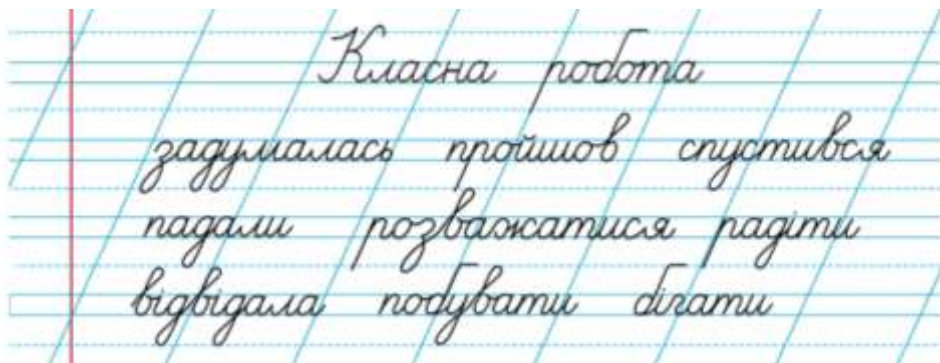 Класна робота
задумалась пройшов спустився
падали розважатися радіти
відвідала побувати бігати